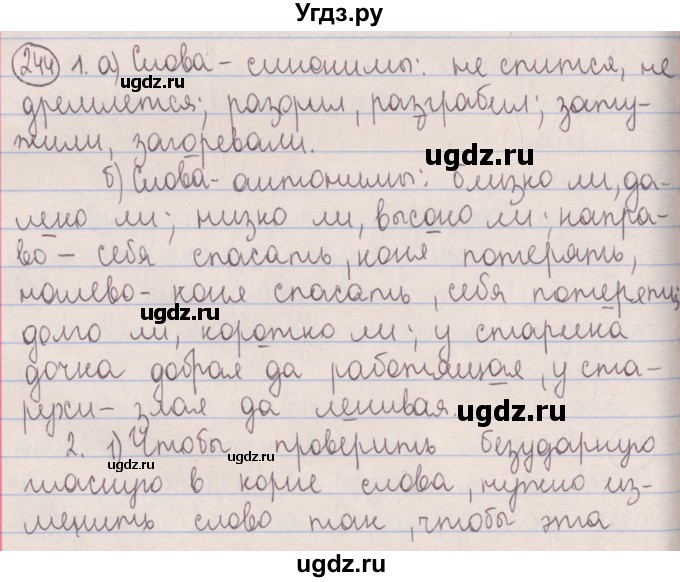 Угдз.ру
244 1. а) Слова - синонимы: не спится, не
дремлется; разорил, разграбил; затужили, загоревали.
б) Слова - антонимы: близко ли, далеко ли; низко ли, высоко ли; направо - себя спасать, коня потерять,
налево - коня спасать, себя потерять;
долго ли, коротко ли; у старика
дочка добрая да работящая, у старухи - злая да ленивая.
2. 1) Чтобы проверить безударную
гласную в корне слова, нужно изменить слово так, чтобы эта
ugdz.ru
ugdz.ru
ugdz.ru
ugdz.ru
ugdz.ru
ugdz.ru
ugdz.ru
ugdz.ru
ugdz.ru
ugdz.ru